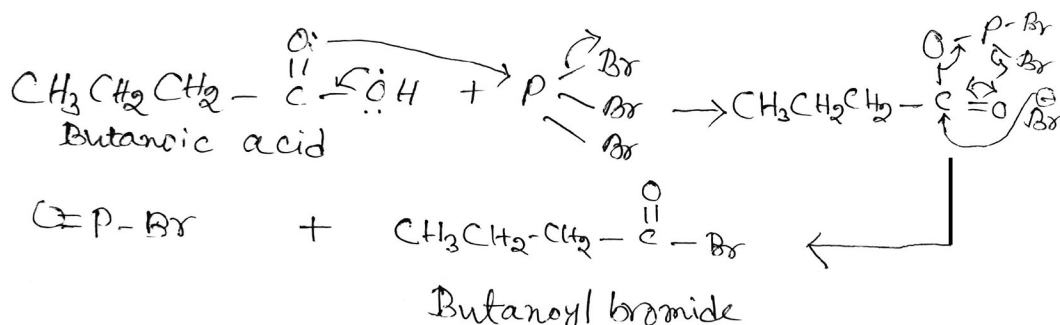 CH₃CH₂CH₂ – C – ÖH + P Br Br Br → CH₃CH₂CH₂ – C = O
O
O – P – Br
Br
Br⊖
Butanoic acid
O=P–Br + CH₃CH₂–CH₂ – C – Br
O
Butanoyl bromide